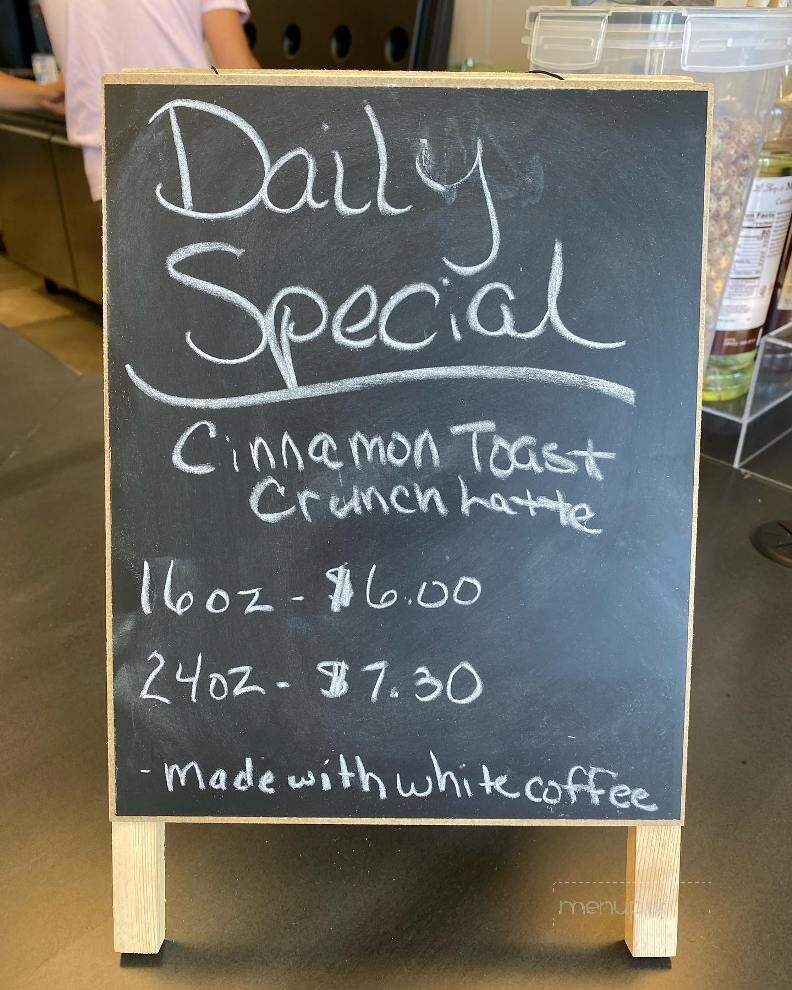 Daily
Special
Cinnamon Toast
Crunch Latte
16oz - $6.00
24oz - $7.30
- made with white coffee